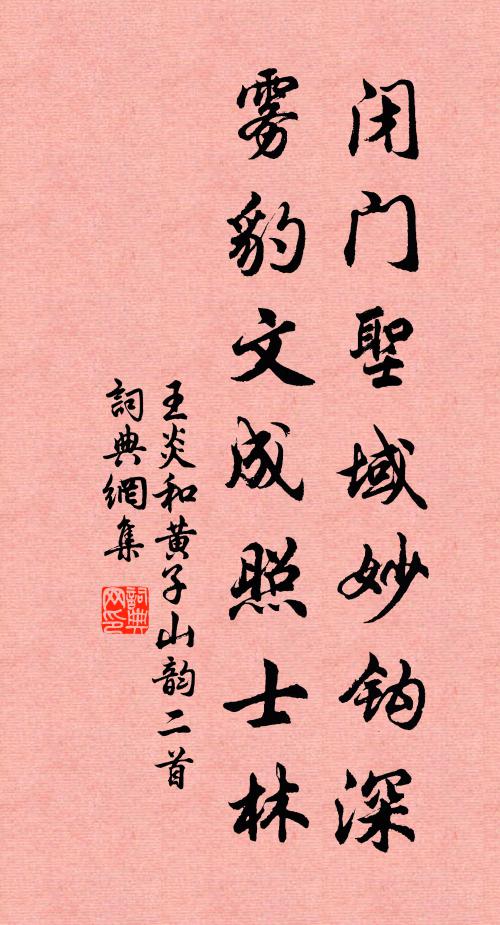 闭门聖域妙钩深
雾豹文成照士林
王炎和黄子山韵二首
詞典網集
詞典网印